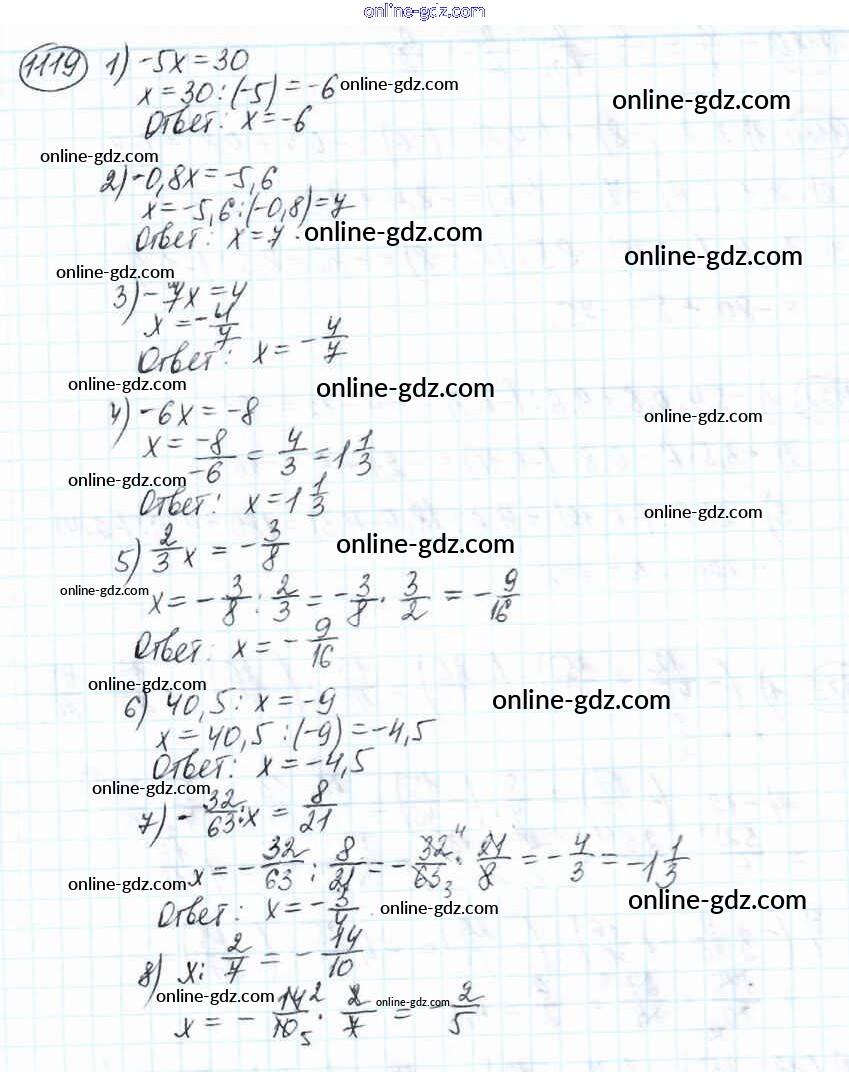 online-gdz.com
1119 1) -5x = 30
x = 30 : (-5) = -6 online-gdz.com
online-gdz.com
Ответ: x = -6
online-gdz.com
2) -0,8x = -5,6
x = -5,6 : (-0,8) = 7
Ответ: x = 7 . online-gdz.com
online-gdz.com
online-gdz.com
3) -7x = 4
x = -4/7
Ответ: x = -4/7
online-gdz.com online-gdz.com
4) -6x = -8 online-gdz.com
x = -8/-6 = 4/3 = 1 1/3
online-gdz.com
Ответ: x = 1 1/3 online-gdz.com
5) 2/3 x = -3/8 online-gdz.com
online-gdz.com
x = -3/8 : 2/3 = -3/8 · 3/2 = -9/16
Ответ: x = -9/16
online-gdz.com
6) 40,5 : x = -9 online-gdz.com
x = 40,5 : (-9) = -4,5
Ответ: x = -4,5
online-gdz.com
7) -32/63 : x = 8/21
x = -32/63 : 8/21 = -32/63 · 21/8 = -4/3 = -1 1/3
4
3
online-gdz.com
online-gdz.com
Ответ: x = -3/4 online-gdz.com
8) x : 2/7 = -14/10
online-gdz.com online-gdz.com
x = -14/10 · 2/7 = -2/5
2
5